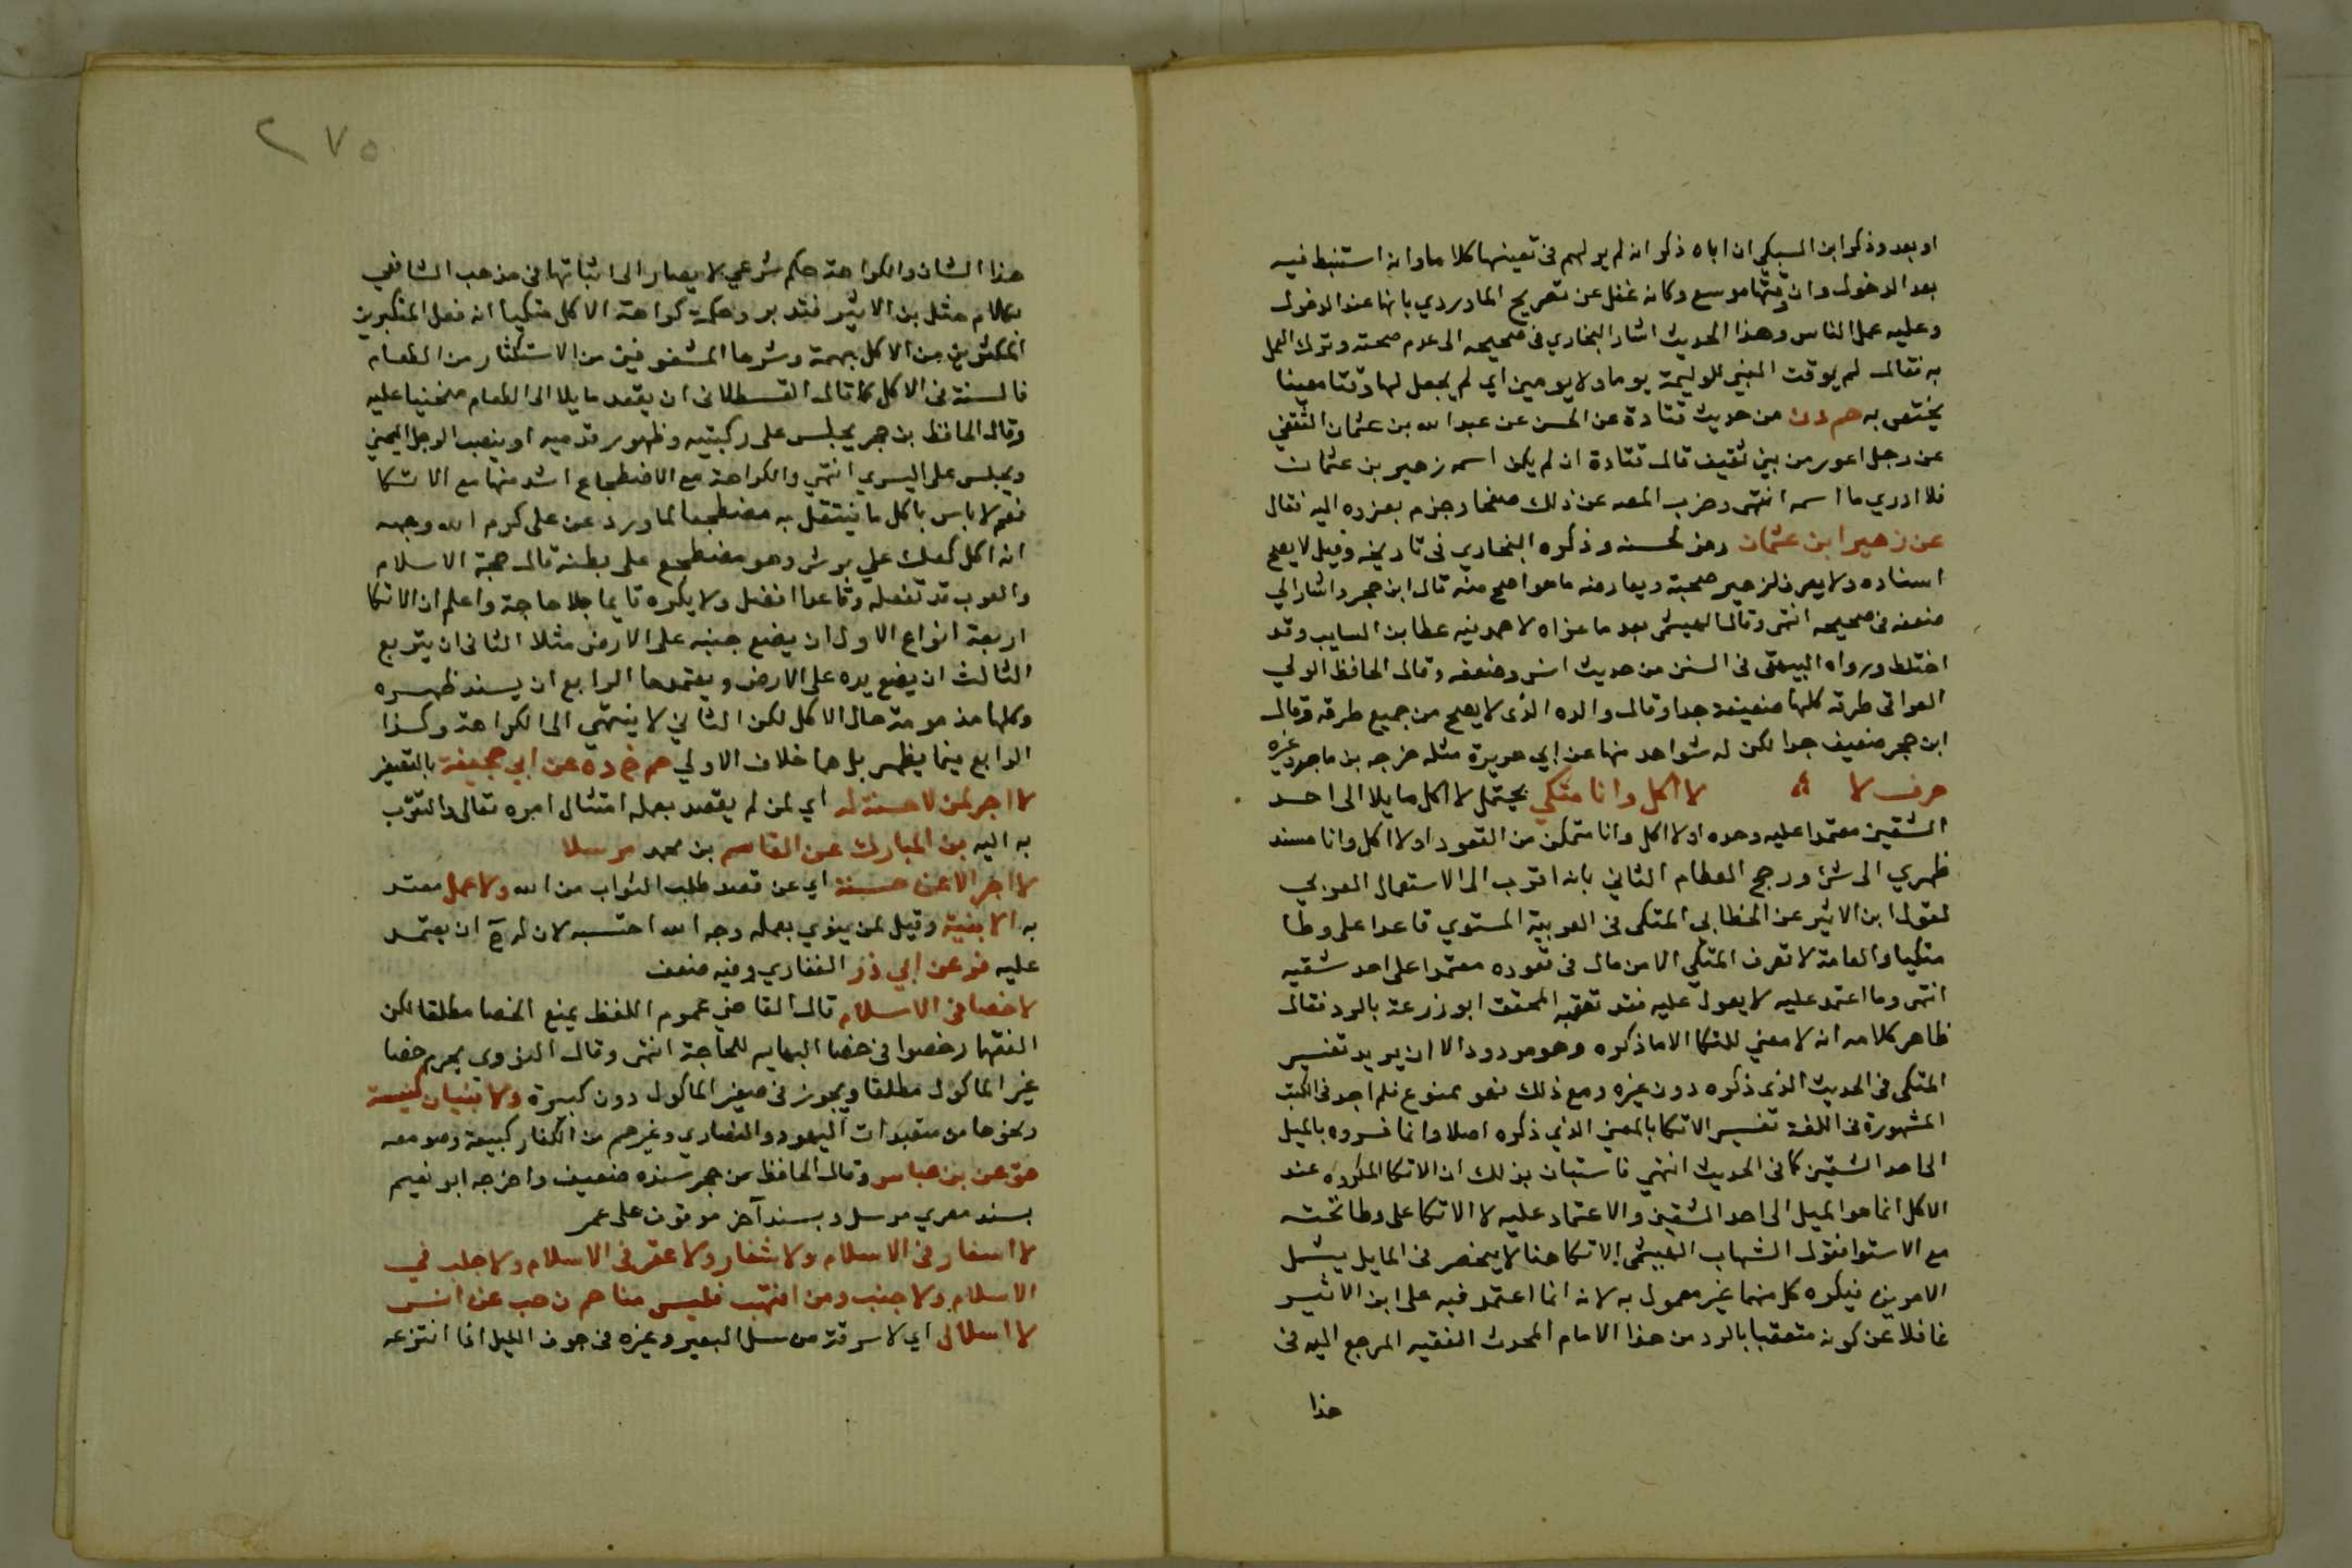 او بعد وذكر ابن السبكي ان اباه ذكر انه لم ير لهم في تعينها كلاما وانه استنبط فيه
بعد الدخول وان وقتها موسع وكانه غفل عن تصريح الماوردي بانها عند الدخول
وعليه عمل الناس وهذا الحديث اشار البخاري في صحيحه الى عدم صحته وترك العمل
به فقال لم يوقت النبي للوليمة يوما ولا يومين اي لم يجعل لها وقتا معينا
يختص به حم دن من حديث قتادة عن الحسن عن عبد الله بن عثمان الثقفي
عن رجل اعور من بني ثقيف قال قتادة ان لم يكن اسمه زهير بن عثمان
فلا ادري ما اسمه انتهى وضرب المص عن ذلك صفحا وجزم بعزوه اليه فقال
عن زهير ابن عثمان رمز لحسنه وذكره البخاري في تاريخه وقيل لا يصح
اسناده ولا يعرف لزهير صحبة ويعارضه ما هو اصح منه قال ابن حجر واشار الي
ضعفه في صحيحه انتهى وقال الهيثمى بعد ما عزاه لاحمد فيه عطا بن السايب وقد
اختلط ورواه البيهقى فى السنن من حديث انس وضعفه وقال الحافظ الولي
العراقى طرقه كلها ضعيفة جدا وقال والده الذى لا يصح من جميع طرقه وقال
ابن حجر ضعيف جدا لكن له شواهد منها عن ابي هريرة مثله خرجه بن ماجه وغيره
حرف لا لا اكل وانا متكي يحتمل لا اكل مايلا الى احد
الشقين معتمدا عليه وحده او لا اكل وانا متمكن من القعود او لا اكل وانا مسند
ظهري الى شئ ورجح العظام الثاني بانه اقرب الى الاستعمال العربي
لقول ابن الاثير عن الخطابى المتكى فى العربية المستوي قاعدا على وطا
متكيا والعامة لا تعرف المتكي الا من مال فى قعوده معتمدا على احد شقيه
انتهى وما اعتمد عليه لا يعول عليه فقد تعقبه المحقق ابو زرعة بالرد فقال
ظاهر كلامه انه لا معني للتكا الا ما ذكره وهو مردود الا ان يريد تفسير
المتكى فى الحديث الذى ذكره دون غيره ومع ذلك فهو ممنوع فلم اجد فى الكتب
المشهورة فى اللغة تفسير الاتكا بالمعني الذي ذكره اصلا وانما فسروه بالميل
الى احد الشقين كما فى الحديث انتهى فاستبان بذلك ان الاتكا المكروه عند
الاكل انما هو الميل الى احد الشقين والاعتماد عليه لا الاتكا على وطا تحته
مع الاستوا فقول الشهاب الهيثمى الاتكا هنا لا ينحصر فى المايل يشمل
الامرين فيكره كل منهما غير معمول به لانه انما اعتمد فيه على ابن الاثير
غافلا عن كونه متعقبا بالرد من هذا الامام المحدث الفقيه المرجع اليه فى
هذا
٢٧٥
هذا الشان والكراهة حكم شرعي لا يصار الى اثباتها فى مذهب الشافعي
بكلام مثل بن الاثير فتدبر وحكمة كراهة الاكل متكيا انه فعل المتكبرين
المكثرين من الاكل بهمة وشرها المشغوفين من الاستكثار من الطعام
فالسنة فى الاكل كما قال القسطلانى ان يقعد مايلا الى الطعام منحنيا عليه
وقال الحافظ بن حجر يجلس على ركبتيه وظهور قدميه او ينصب الرجل اليمني
ويجلس على اليسري انتهي والكراهة مع الاضطجاع اشد منها مع الاتكا
نعم لا باس باكل ما يتنقل به مضطجعا لما ورد عن على كرم الله وجهه
انه اكل كعك علي برش وهو مضطجع على بطنه قال حجة الاسلام
والعرب قد تفعله وقاعدا افضل ولا يكره قايما بلا حاجة واعلم ان الاتكا
اربعة انواع الاول ان يضع جنبه على الارض مثلا الثانى ان يتربع
الثالث ان يضع يده على الارض ويعتمدها الرابع ان يسند ظهره
وكلها مذمومة حال الاكل لكن الثاني لا ينتهي الى الكراهة وكذا
الرابع فيما يظهر بل هما خلاف الاولي حم خ ده عن ابي جحيفة بالتصغير
لا اجر لمن لا حسنة له اي لمن لم يقصد بعمله امتثال امره تعالى والتقرب
به اليه بن المبارك عن القاسم بن محمد مرسلا
لا اجر الا عن حسنة اي عن قصد طلب الثواب من الله ولا عمل معتد
به الا بنية وقيل لمن ينوي بعمله وجه الله احتسبه لان له ح ان يعتمد
عليه فر عن ابي ذر الغفاري وفيه ضعف
لا خصا فى الاسلام قال القاضي عموم اللفظ يمنع الخصا مطلقا لكن
الفقها رخصوا فى خصا البهايم للحاجة انتهى وقال النووى يحرم خصا
غير الماكول مطلقا ويجوز فى صغير الماكول دون كبيره ولا بنيان كنيسة
ونحوها من متعبدات اليهود والنصاري وغيرهم من الكفار كبيعة وصومعه
هق عن بن عباس وقال الحافظ بن حجر سنده ضعيف واخرجه ابو نعيم
بسند مصري مرسل وبسند آخر موقوف على عمر
لا اسعار فى الاسلام ولا شغار ولا عقر فى الاسلام ولا جلب في
الاسلام ولا جنب ومن انتهب فليس منا حم ن حب عن انس
لا اسلال اي لا سرقة من سل البعير وغيره فى جوف الليل اذا انتزعه